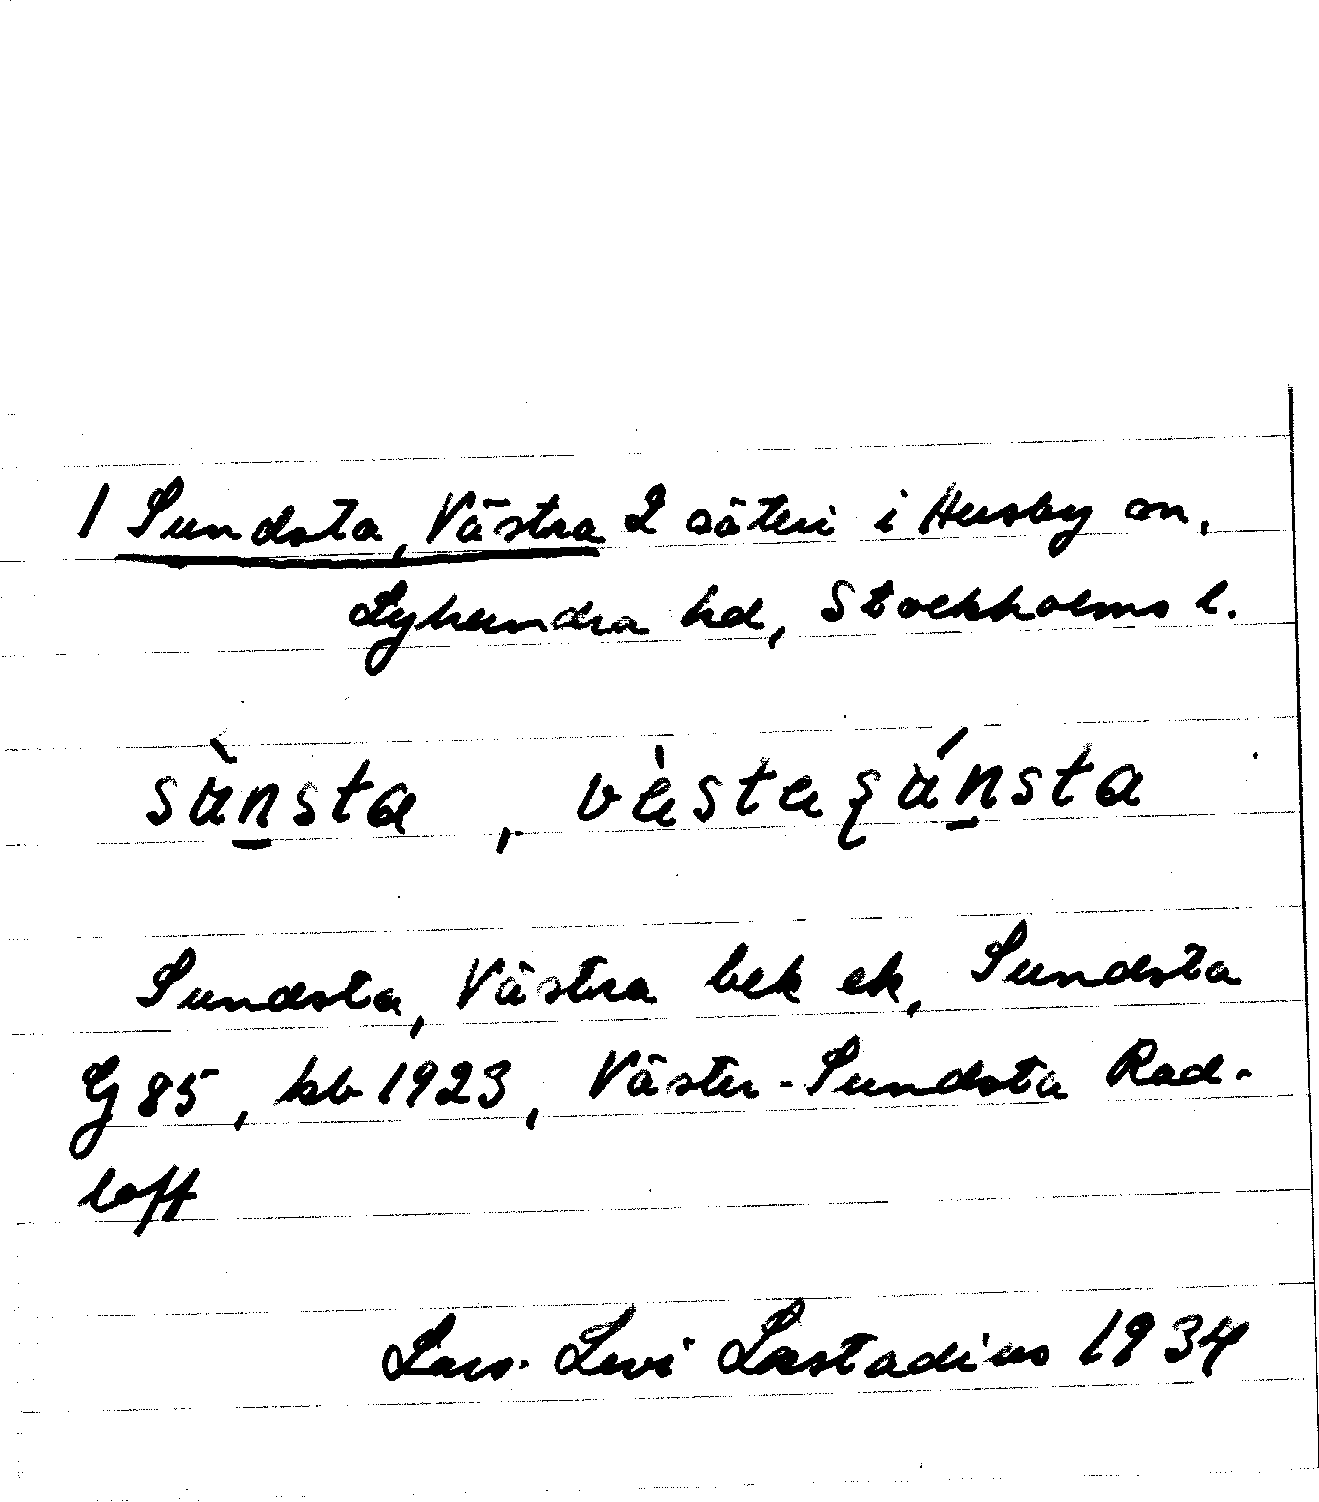 1 Sundsta, Västra 2 säteri i Husby sn,
Lyhundra hd, Stockholms l.
sù̱nsta , vè̀staʂú̱nsta
Sundsta, Västra bek ek, Sundsta
G 85, kb 1923, Väster-Sundsta Rad-
loff
Lars-Levi Læstadius 1934